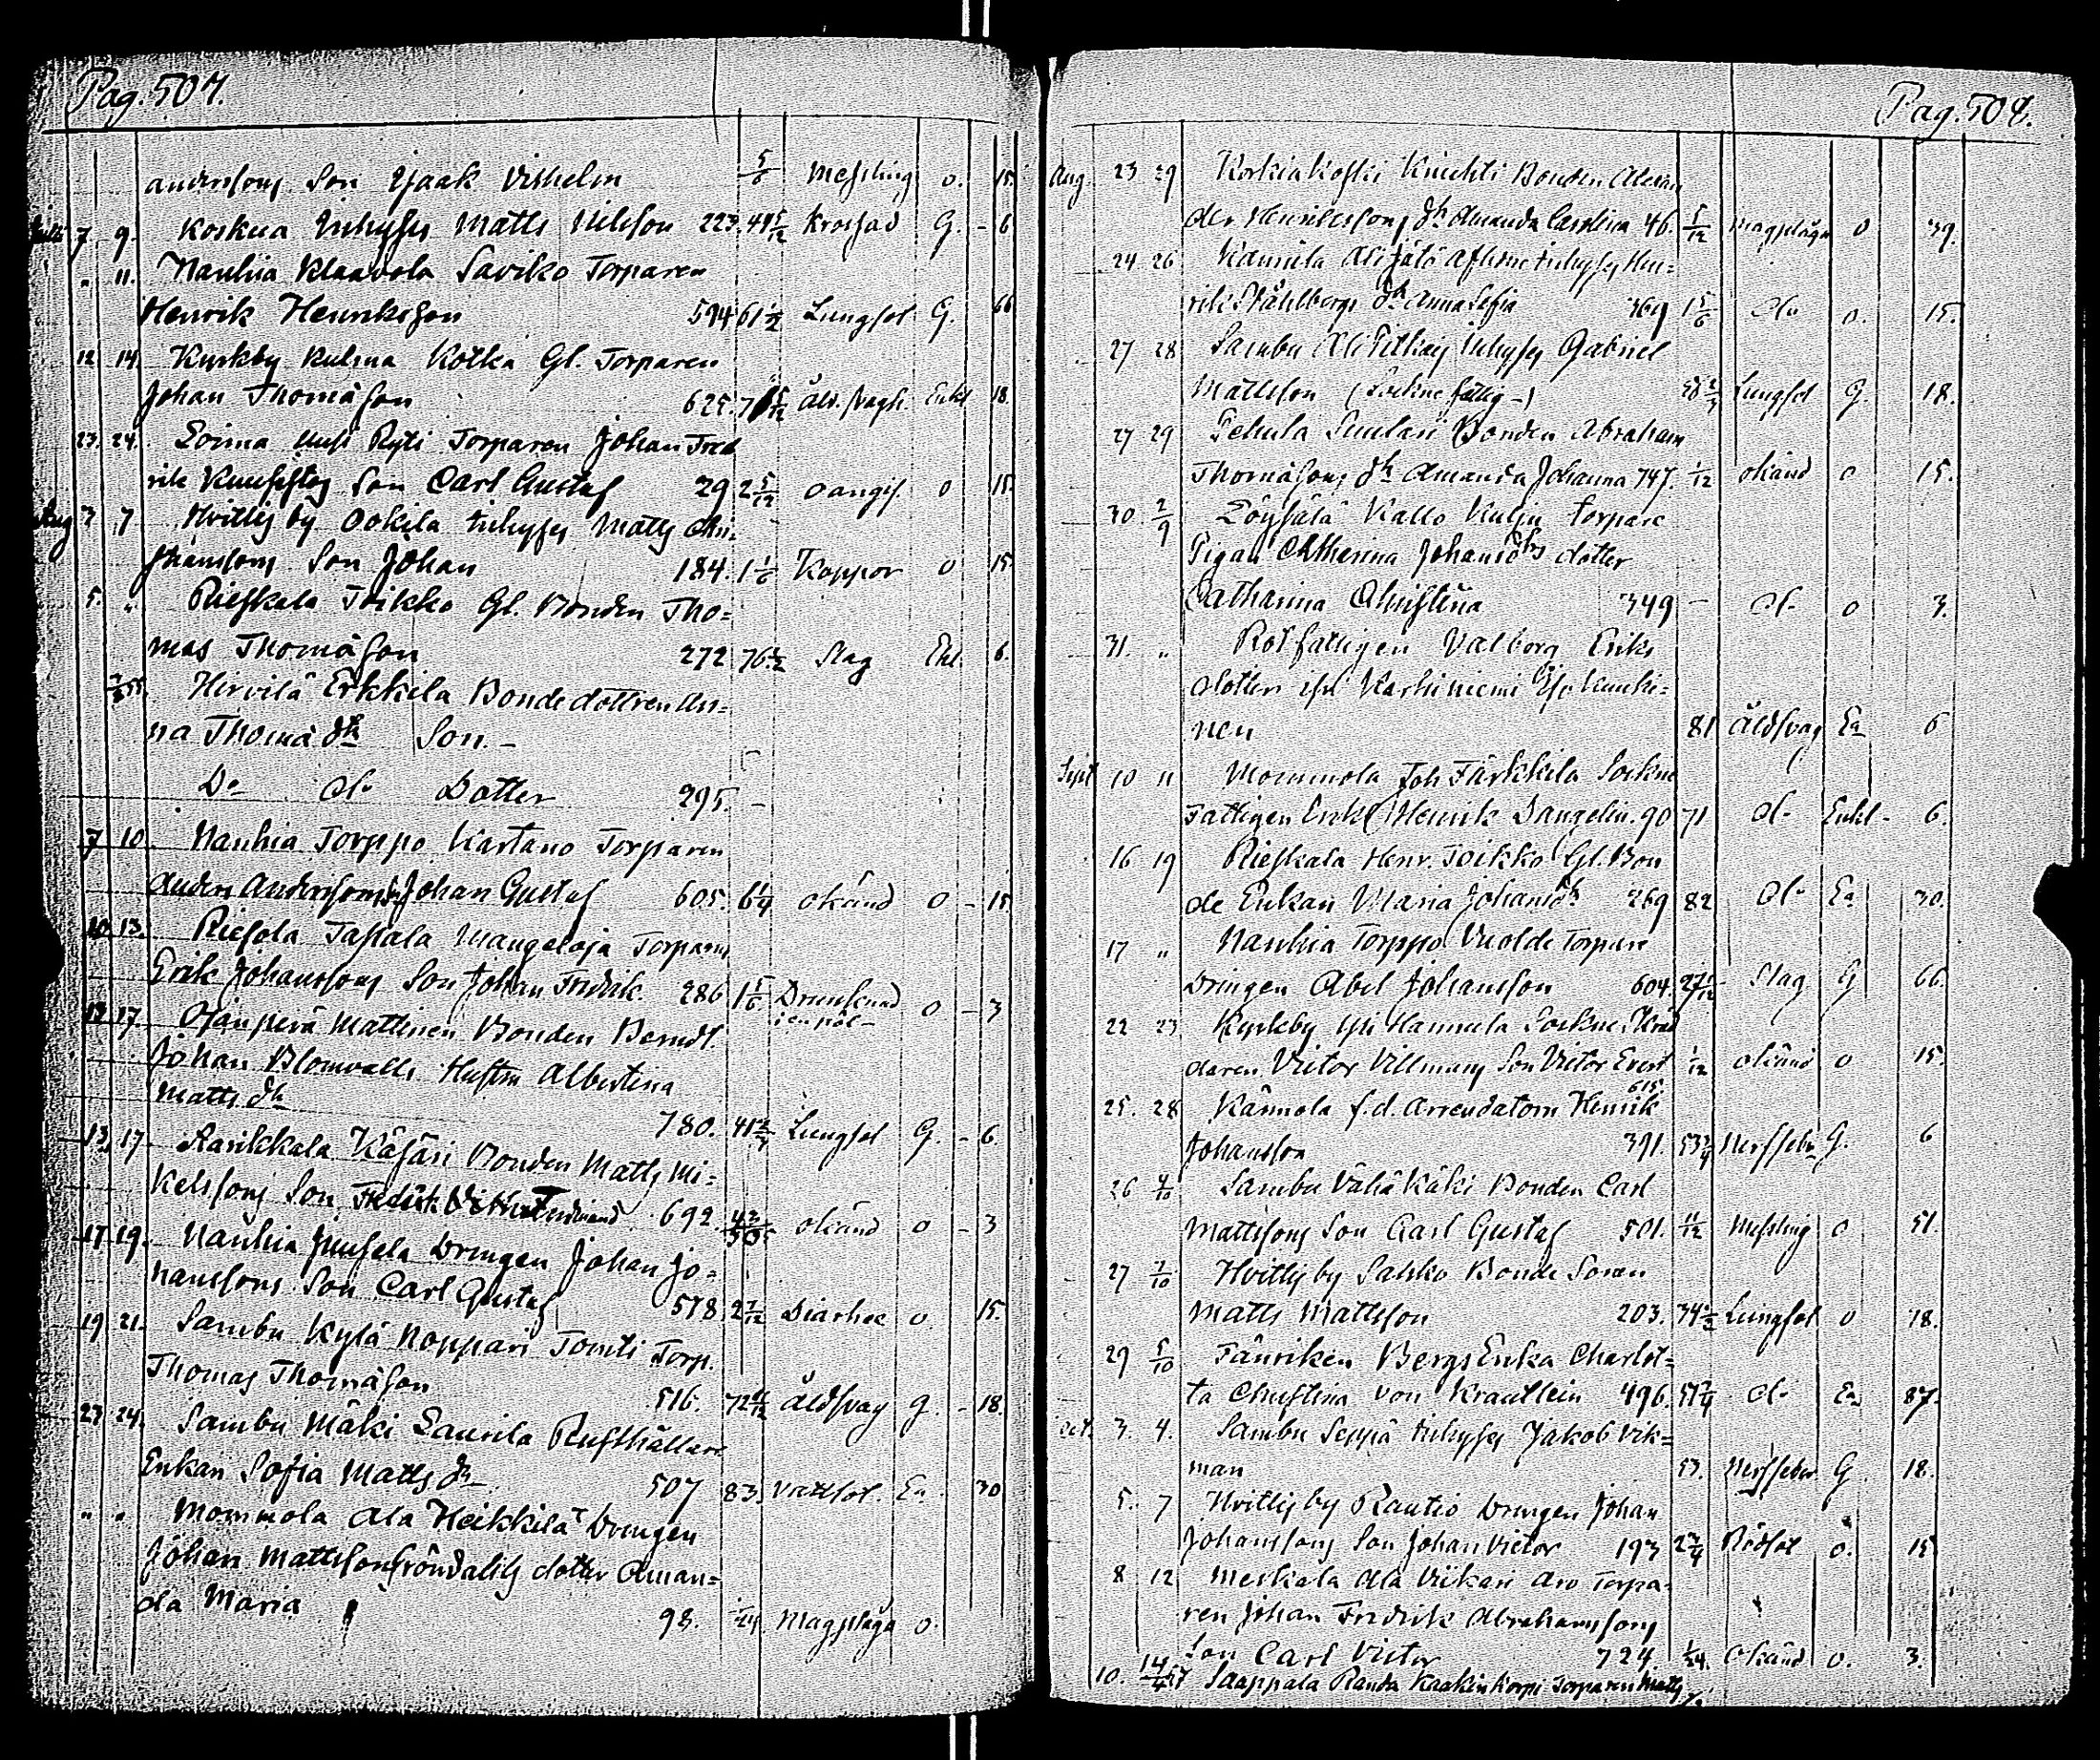 Pag. 507.
andersons Son Isaak Vilhelm 5/6 Messling o. 15.
Juli 7 9. Koskua Inhyses Matts Nilsson 223. 41 5/12 Krossad G. - 6
" 11. Nauhia Klaavola Saviko Torparen
Henrik Henriksson 594 61 1/2 Lungsot G. 66
12 14 Kyrkby Kulma Kotka Gl. Torparen
Johan Thomäson 625. 7 5/12 Åld. svagh. Enkl 18.
23. 24. Loima Uusi Ryti Torparen Johan Fred
rik Son Carl Gustaf 29 2 5/12 oangif. o 15.
Aug 3 7 Hvittis by Ookila Inhyses Matts Chri-
stianssons Son Johan 184. 1 1/6 Koppor o 15.
5. " Rieskala Toikko Gl. Bonden Tho=
mas Thomäson 272 76 1/2 Slag Ekl. 6.
Hirvilä Erkkila Bondedottren An=
na Thomä dr Son -
Do do Dotter 295. -
7 10 Nauhia Torppo Kartano Torparen
Anders Anderssons Johan Gustaf 605. 6 1/4 okänd o - 15
10 13. Riesola Tapala Mangeloja Torparens
Erik Johanssons Son Johan Fredrik. 286 1 5/6 Drunknad o - 3
i en pöl -
12 17. Ojanperä Mattinen Bonden Berndt
Johan Blomvalls Hustru Albertina
Matts dr 780. 41 2/3 Lungsot G. - 6.
13, 17 Sarikkala Käjäri Bonden Matts Mi=
kelssons Son Fredrik Ferdinand 692. okänd o - 3
17 19. Nauhia Juusela Drengen Johan Jo=
hanssons Son Carl Gustaf 578 2 7/12 Diarhee o 15.
19 21. Sambu Kylä Noppari Tomti Torp.
Thomas Thomäson 516. 72 Åldsvag g. - 18.
23 24. Sambu Mäki Laurila Rusthållare
Enkan Sofia Matts dr 507 83. Vattsot. Ea. 30
" " Mommola Ala Heikkilä Drengen
Johan Mattsson Gröndahls dotter Aman=
da Maria 98. Magplåga o.
Pag. 508.
Aug 23 29 Korkiakoski Knichti Bonden Alexan
der Henrikssons dr Amanda Carolina 46. 5/12 Magplåga o 39.
24 26 Kännila Alijätö Inhyses Hen=
rik Ståhlbergs dr Anna Sofia 369 1 5/6 do o. 15.
27 28 Sambu Ali Inhyses Gabriel
Mattsson (Sockne fattig -) Lungsot G. 18.
27 29 Pehula Suulari Bonden Abraham
Thomäsons dr Amanda Johanna 747. 1/12 okänd o 15.
30. 2/9 Löysälä Kallo Kulju Torpare
Pigan Catherina Johansdrs dotter
Catharina Christina 349 - do o 3.
31. " Rotfattigen Valborg Eriks
dotter
nen 81 Åldsvag Ea 6
Sept 10 11 Mommola Joh Färkkila Sockne
Fattigen Erik Henrik Dangelin. 90 71 do Enkl - 6.
16 19 Rieskala Henr. Toikko Gl. Bon
de Enkan Maria Johansdr 269 82 do Ea 30.
17 " Nauhia Torppo Vuolde Torpare
Drengen Abel Johansson 604. 27 Slag G 66.
22 23 Kyrkby Hannula Sockne Skräd
daren Victor Villmans Son Victor Evert 1/12 okänd o 15.
615.
25. 28 Kännola f.d. Arrendatorn Henrik
Johansson 391. 53 3/4 Nerffeber G. 6
26 4/10 Sambu Vähä Käki Bonden Carl
Mattssons Son Carl Gustaf 501. 11/12 Messling o 51.
27 7/10 Hvittis by Sahko Bonde Sonen
Matts Mattsson 203. 34 1/2 Lungsot o 18.
29 5/10 Fänriken Bergs Enka Charlot=
ta Christina von Krautlein 496. do Ea 87.
Oct. 3. 4. Sambu Seppä Inhyses Jakob Vik=
man 53. Nerffeber G. 18.
5. 7 Hvittis by Rautio Drengen Johan
Johanssons Son Johan Victor 193 2 3/4 Rödsot o. 15
8 12 Meskala Ala Viikari Aro Torpa=
ren Johan Fredrik Abrahamssons
Son Carl Victor 724. 1/24. okänd o. 3.
10. Saappala Randa Kaakinkorpi Torparen Matts